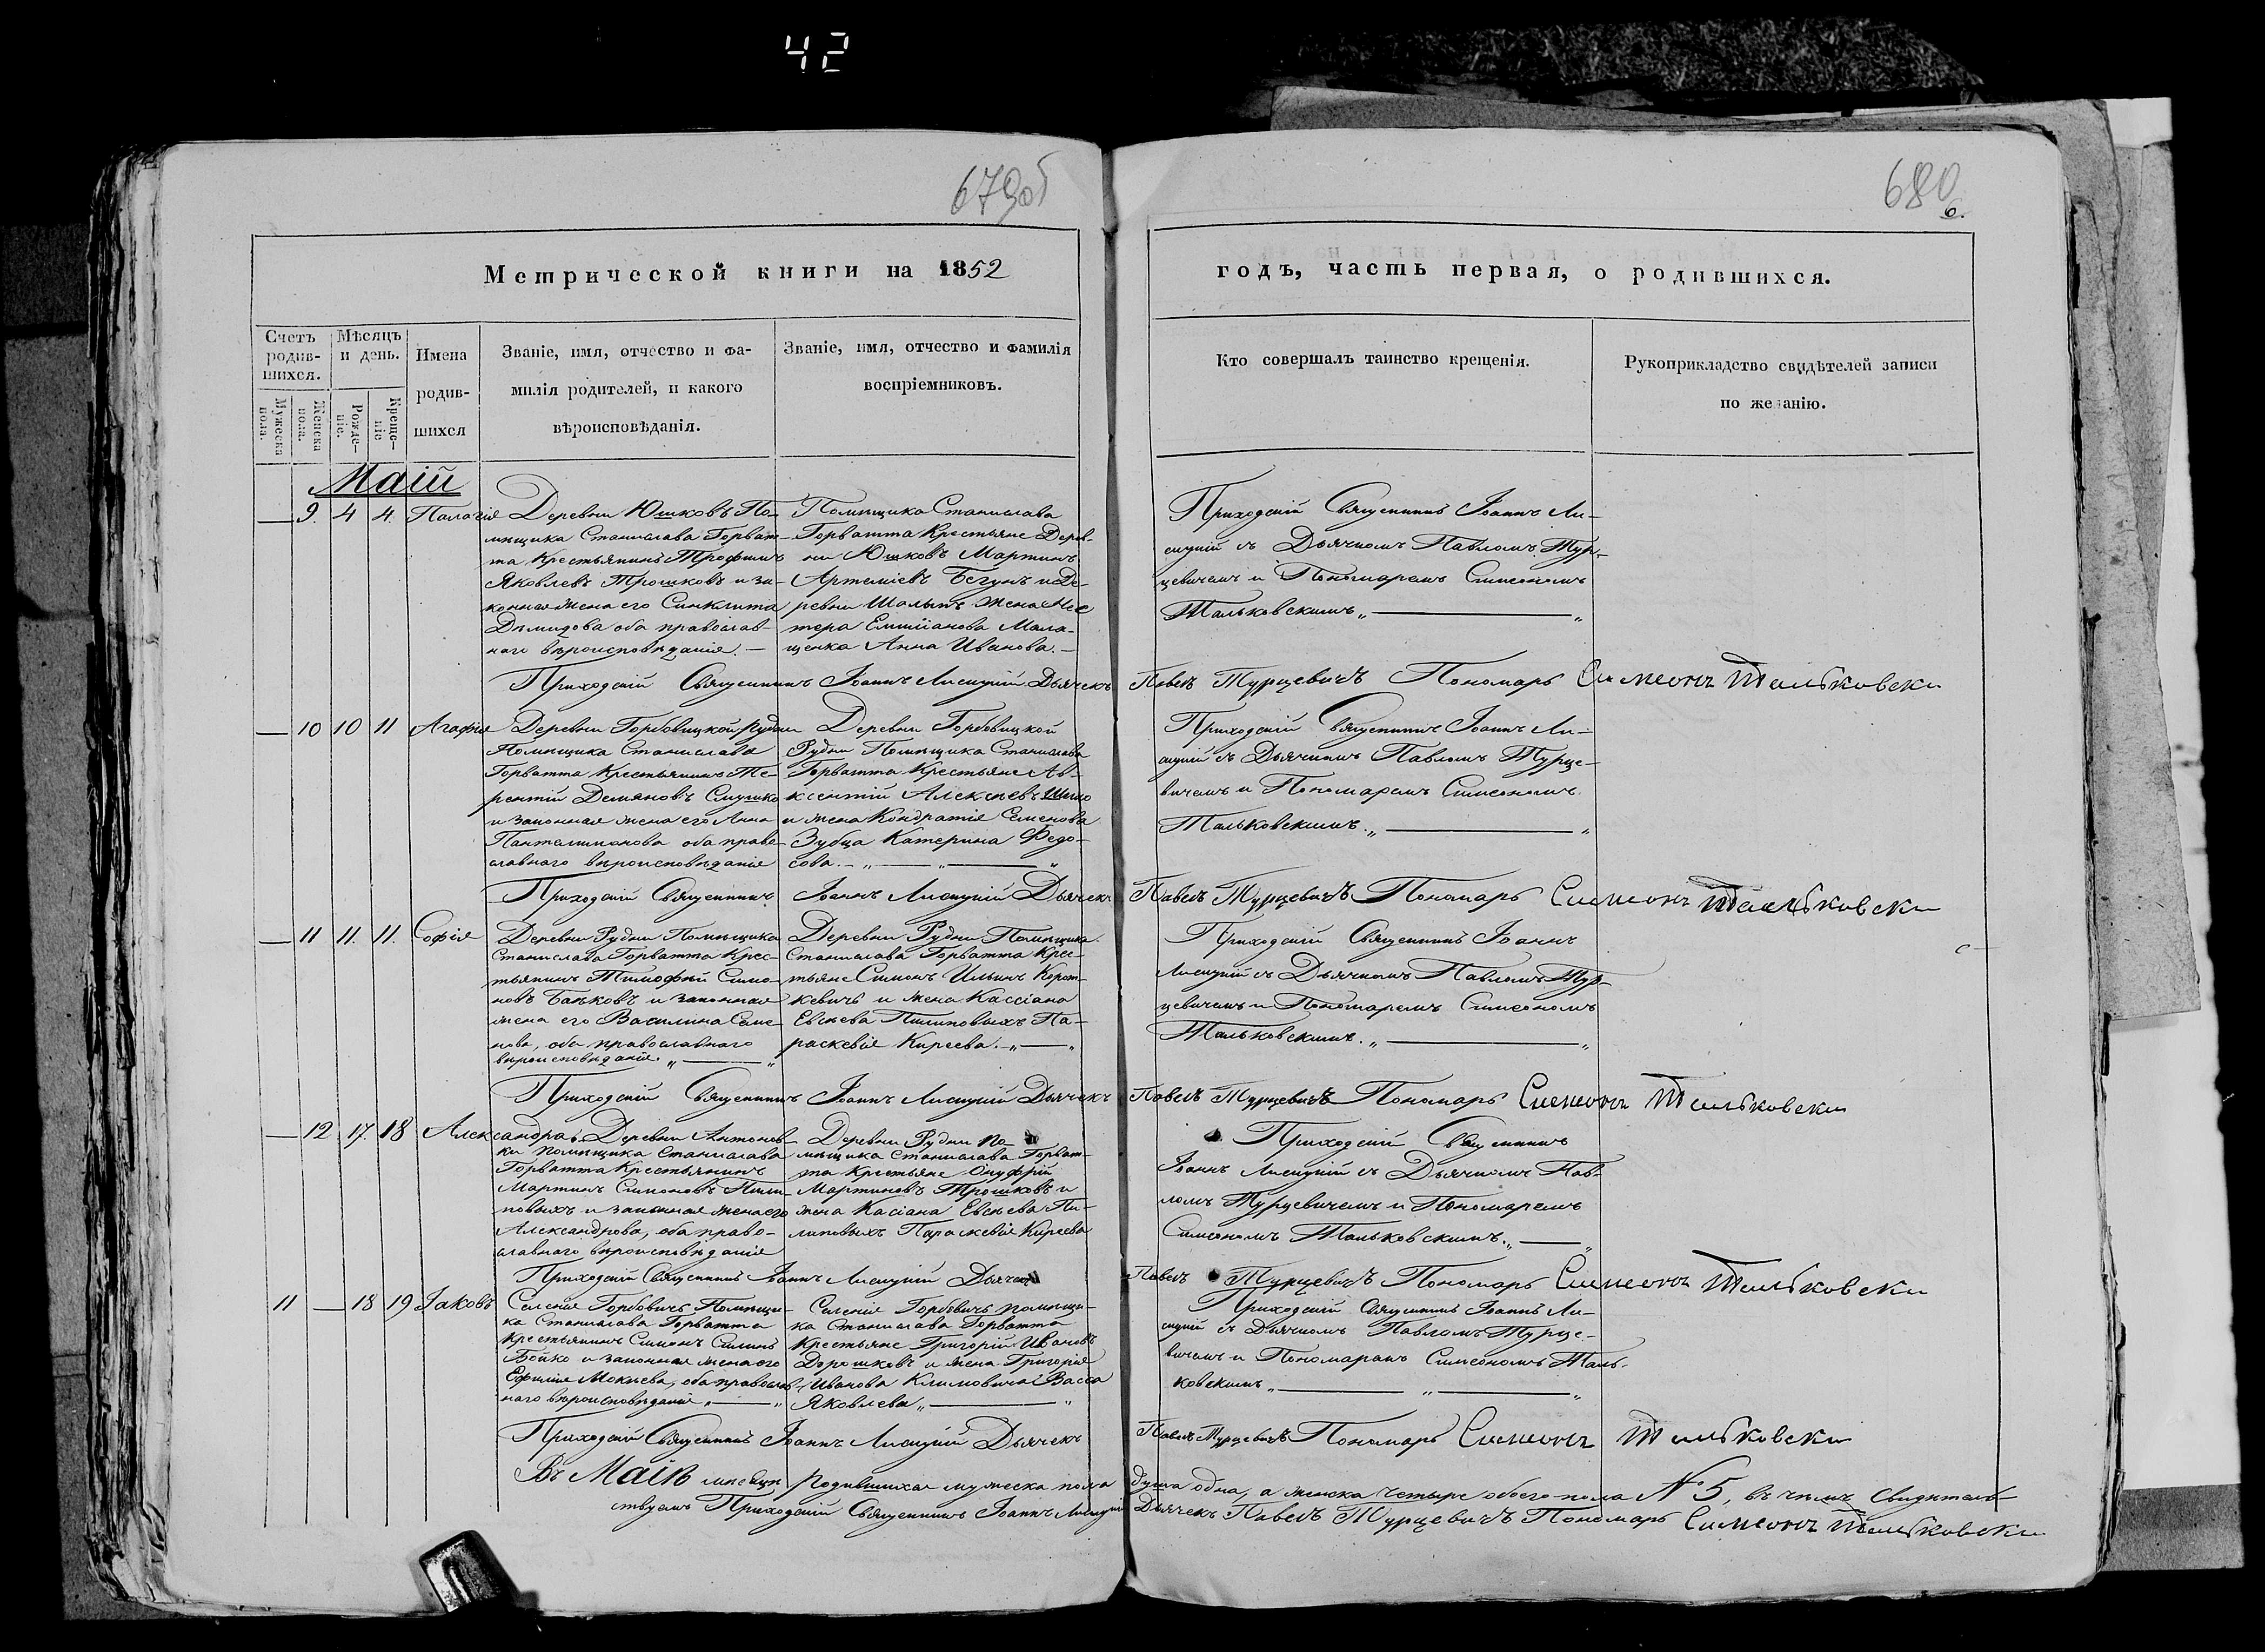 42
679об
680
6.
Метрической книги на 1852
годъ, часть первая, о родившихся.
Счетъ родив-шихся.
Мѣсяцъ и день.
Имена родив-шихся
Званіе, имя, отчество и фа-
милія родителей, и какого
вѣроисповѣданія.
Званіе, имя, отчество и фамилія
воспріемниковъ.
Мужеска пола.
Женска пола.
Рожде-ніе.
Креще-ніе
Кто совершалъ таинство крещенія.
Рукоприкладство свидѣтелей записи
по желанію.
Маій
— 9. 4 4. Палагія
Деревни Юшковъ По-
мѣщика Станислава Горват-
та Крестьянинъ Трофимъ
Яковлевъ Трошковъ и за-
конная жена его Синклита
Демидова оба православ-
наго вѣроисповѣданія. —
Помѣщика Станислава
Горватта Крестьяне Дерев-
ни Юшковъ Мартинъ
Артемiевъ Бегунъ и Де-
ревни жена Нес
тера Емиліанова Мала-
щенка Анна Иванова. —
Приходскій Священникъ Іоаннъ Ли-
сицкій съ Дьячкомъ Павломъ Тур-
цевичемъ и Пономаремъ Симеономъ
Тальковскимъ „ — „
Приходскій Священникъ Іоаннъ Лисицкій Дьячекъ Павелъ Турцевичъ Пономарь Симеонъ Тальковски
— 10 10 11 Агафія
Деревни Горбовицкой Рудни
Помѣщика Станислава
Горватта Крестьянинъ Те-
рентій Демяновъ
и законная жена его Анна
Панталимонова оба право-
славнаго вѣроисповѣданія
Деревни Горбовицкой
Рудни Помѣщика Станислава
Горватта Крестьяне Ав-
ксентій Алексѣевъ
и жена Кондратія Семенова
Зубца Катерина Федо-
сова. — „ — „ — „
Приходскій Священникъ Іоаннъ Ли-
сицкій съ Дьячкомъ Павломъ Турце-
вичемъ и Пономаремъ Симеономъ
Тальковскимъ. „ — „
Приходскій Священникъ Іоаннъ Лисицкій Дьячекъ Павелъ Турцевичъ Пономарь Симеонъ Тальковски
— 11 11. 11. Софія
Деревни Рудни Помѣщика
Станислава Горватта Крес-
тьянинъ Тимофѣй Симо-
новъ Баньковъ и законная
жена его Василина Семе-
нова, оба православнаго
вѣроисповѣданія. „ — „
Деревни Рудни Помѣщика
Станислава Горватта Крес-
тьяне Симонъ Ильинъ Корот-
кевичъ и жена Кассіана
Евсѣева Пилиповыхъ Па-
раскевія Киреева. „ — „
Приходскій Священникъ Іоаннъ
Лисицкій съ Дьячкомъ Павломъ Тур-
цевичемъ и Пономаремъ Симеономъ
Тальковскимъ. „ — „
Приходскій Священникъ Іоаннъ Лисицкій Дьячекъ Павелъ Турцевичъ Пономарь Симеонъ Тальковски
— 12 17. 18 Александра
Деревни Антонов-
ки помѣщика Станислава
Горватта Крестьянинъ
Мартинъ Симоновъ Пили-
повыхъ и законная жена его
Александрова, оба право-
славнаго вѣроисповѣданія
Деревни Рудни по-
мѣщика Станислава Горват-
та Крестьяне Онуфрій
Мартиновъ Трошковъ и
жена Касіана Евсѣева Пи-
липовыхъ Параскевія Киреева
Приходскій Священникъ
Іоаннъ Лисицкій съ Дьячкомъ Пав-
ломъ Турцевичемъ и Пономаремъ
Симеономъ Тальковскимъ. „ — „
Приходскій Священникъ Іоаннъ Лисицкій Дьячекъ Павелъ Турцевичъ Пономарь Симеонъ Тальковски
11 — 18 19 Іаковъ
Селенія Горбовичъ Помѣщи-
ка Станислава Горватта
Крестьянинъ Симонъ
Бойко и законная жена его
Ефимія Мокіева, оба православ-
наго вѣроисповѣданія „ — „
Селенія Горбовичъ помѣщи-
ка Станислава Горватта
Крестьяне Григорій Ивановъ
Дорошковъ и жена Григорія
Иванова Климовича Васса
Яковлева „ — „
Приходскій Священникъ Іоаннъ Ли-
сицкій съ Дьячкомъ Павломъ Турце-
вичемъ и Пономаремъ Симеономъ Таль-
ковскимъ „ — „ — „
Приходскій Священникъ Іоаннъ Лисицкій Дьячекъ Павелъ Турцевичъ Пономарь Симеонъ Тальковски
Въ Маіѣ мѣсяцѣ родившихся мужеска пола душа одна, а женска четыре обоего пола № 5, въ чемъ свидѣтель-
ствуемъ Приходскій Священникъ Іоаннъ Лисицкій Дьячекъ Павелъ Турцевичъ Пономарь Симеонъ Тальковски